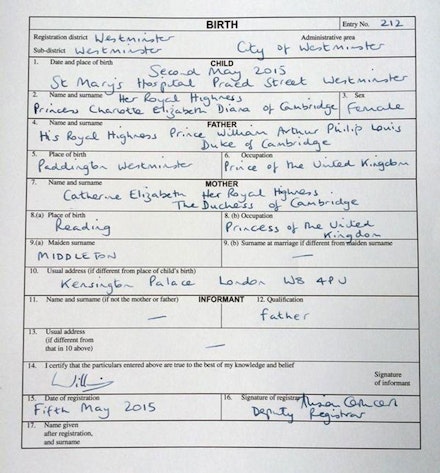 BIRTH
Entry No. 212
Registration district Westminster
Administrative area
Sub-district Westminster
City of Westminster
CHILD
1. Date and place of birth
Second May 2015
St Mary's Hospital Praed Street Westminster
2. Name and surname Her Royal Highness
3. Sex
Princess Charlotte Elizabeth Diana of Cambridge Female
FATHER
4. Name and surname
His Royal Highness Prince William Arthur Philip Louis
Duke of Cambridge
5. Place of birth
6. Occupation
Paddington Westminster
Prince of the United Kingdom
MOTHER
7. Name and surname
Catherine Elizabeth Her Royal Highness
The Duchess of Cambridge
8.(a) Place of birth
8. (b) Occupation
Reading
Princess of the United
Kingdom
9.(a) Maiden surname
9. (b) Surname at marriage if different from maiden surname
MIDDLETON
—
10. Usual address (if different from place of child's birth)
Kensington Palace London W8 4PU
INFORMANT
11. Name and surname (if not the mother or father)
12. Qualification
—
Father
13. Usual address
(if different from
that in 10 above)
—
14. I certify that the particulars entered above are true to the best of my knowledge and belief
Signature
of informant
15. Date of registration
16. Signature of registrar
Fifth May 2015
Deputy Registrar
17. Name given
after registration,
and surname